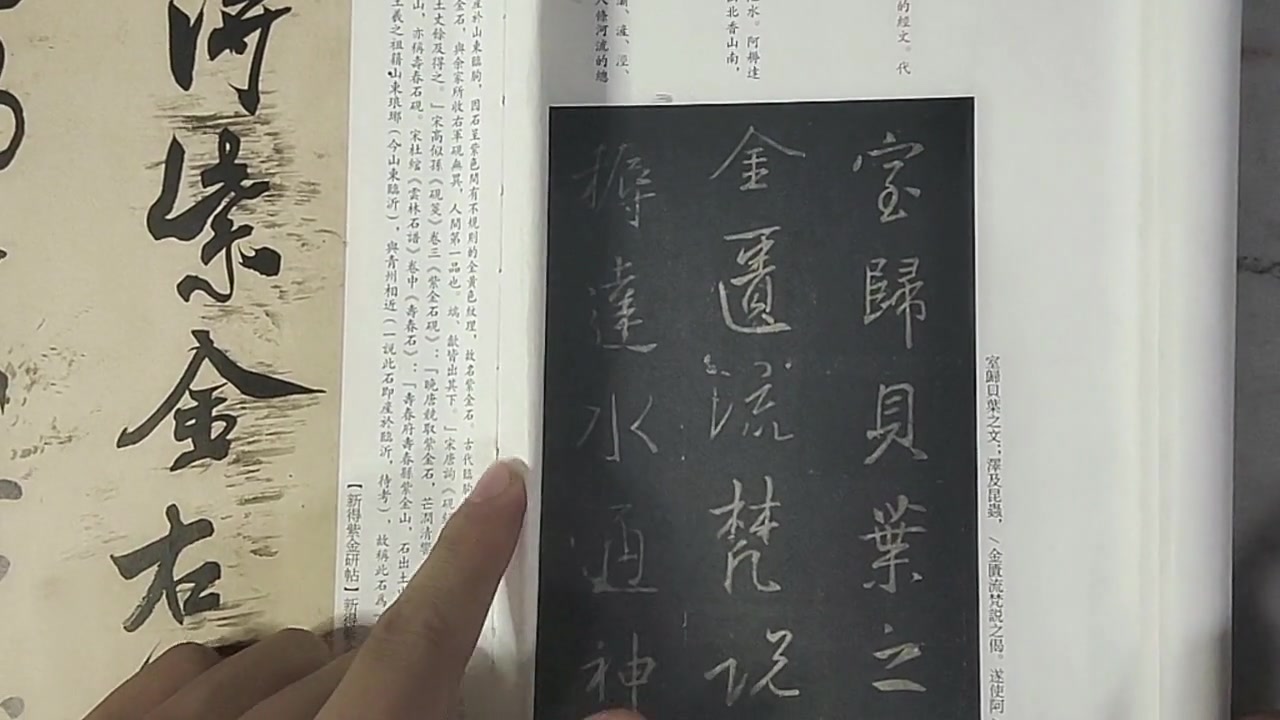 的經文。代
水。阿耨達
北香山南，
灞、滻、涇、
八條河流的總
室歸貝葉之文；澤及昆蟲，\金匱流梵説之偈。遂使阿
室歸貝葉之
金匱流梵説
耨達水通神
產於山東臨朐，因石呈紫色間有不規則的金黃色紋理，故名紫金石。古代臨朐
金石，與余家所收右軍硯無異，人間第一品也。端、歙皆出其下。」宋唐詢《硯
土丈餘及得之。」宋高似孫《硯箋》卷三《紫金石硯》：「晚唐競取紫金石，芒潤清響
山，亦稱壽春石硯。宋杜綰《雲林石譜》卷中《壽春石》：「壽春府壽春縣紫金山，石出土中
王羲之祖籍山東琅琊（今山東臨沂），與青州相近（一説此石即産於臨沂，待考），故稱此石爲
【新得紫金研帖】新得
紫金右